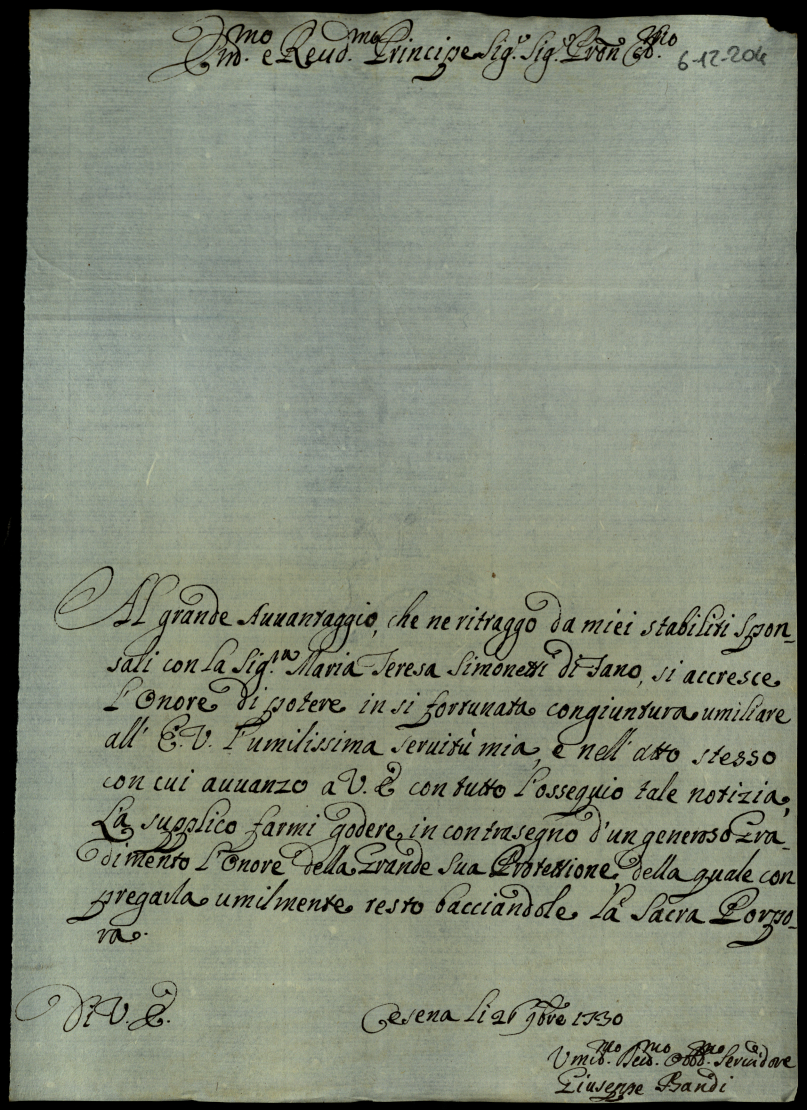 Em.mo e Reud.mo Principe Sig.r Sig.r Pron Col.mo
6-12-204
Al grande Auuantaggio, che ne ritraggo da miei stabiliti Spon-
sali con la Sig.ra Maria Teresa Simonetti di Fano, si accresce
l'Onore di potere in si fortunata congiuntura umiliare
all' E. V. l'umilissima seruitù mia, e nell' atto stesso
con cui auuanzo a V. E. con tutto l'ossequio tale notizia,
La supplico farmi godere in contrasegno d'un generoso Gra-
dimento l'Onore della Grande Sua Protettione, della quale con
pregarla umilmente resto bacciandole la Sacra Porpo-
ra.
Di V. E.
Cesena li 26 9bre 1730
Umil.mo Deu.mo Obb.mo Seruidore
Giuseppe Bandi